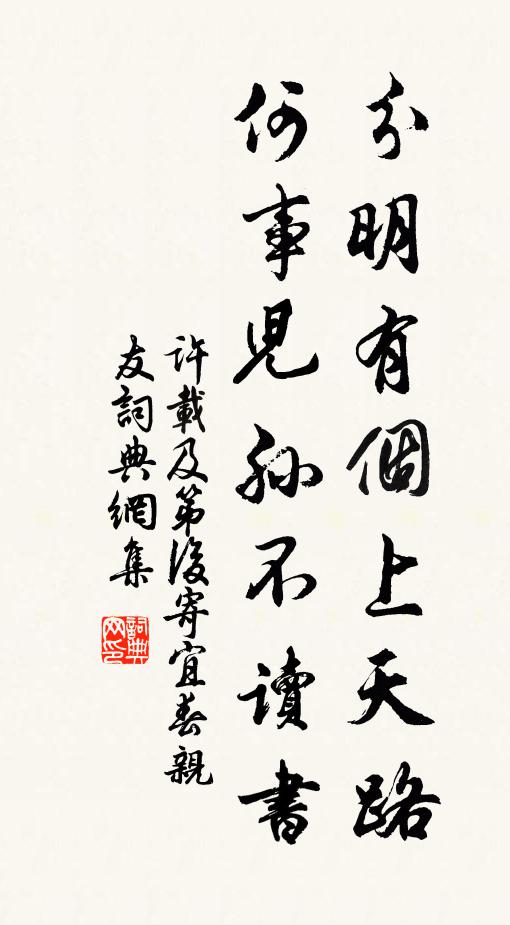 分明有個上天路
何事兒孫不讀書
許載及第後寄宜春親
友詞典網集
詞典网印